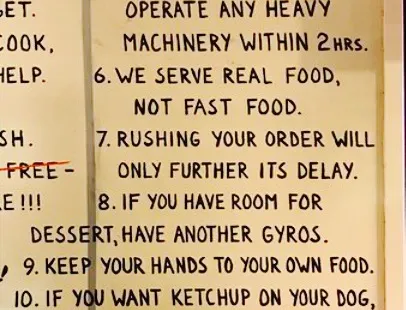 GET.
COOK,
HELP.
SH.
FREE -
E !!!
!
OPERATE ANY HEAVY
MACHINERY WITHIN 2 HRS.
6. WE SERVE REAL FOOD,
NOT FAST FOOD.
7. RUSHING YOUR ORDER WILL
ONLY FURTHER ITS DELAY.
8. IF YOU HAVE ROOM FOR
DESSERT, HAVE ANOTHER GYROS.
9. KEEP YOUR HANDS TO YOUR OWN FOOD.
10. IF YOU WANT KETCHUP ON YOUR DOG,